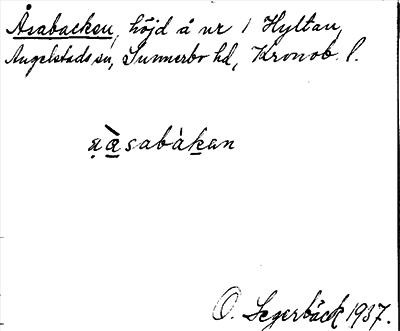 Åsabacken, höjd å nr 1 Hyltan,
Angelstads sn, Sunnerbo hd, Kronob. l.
O. Segerbäck 1937.